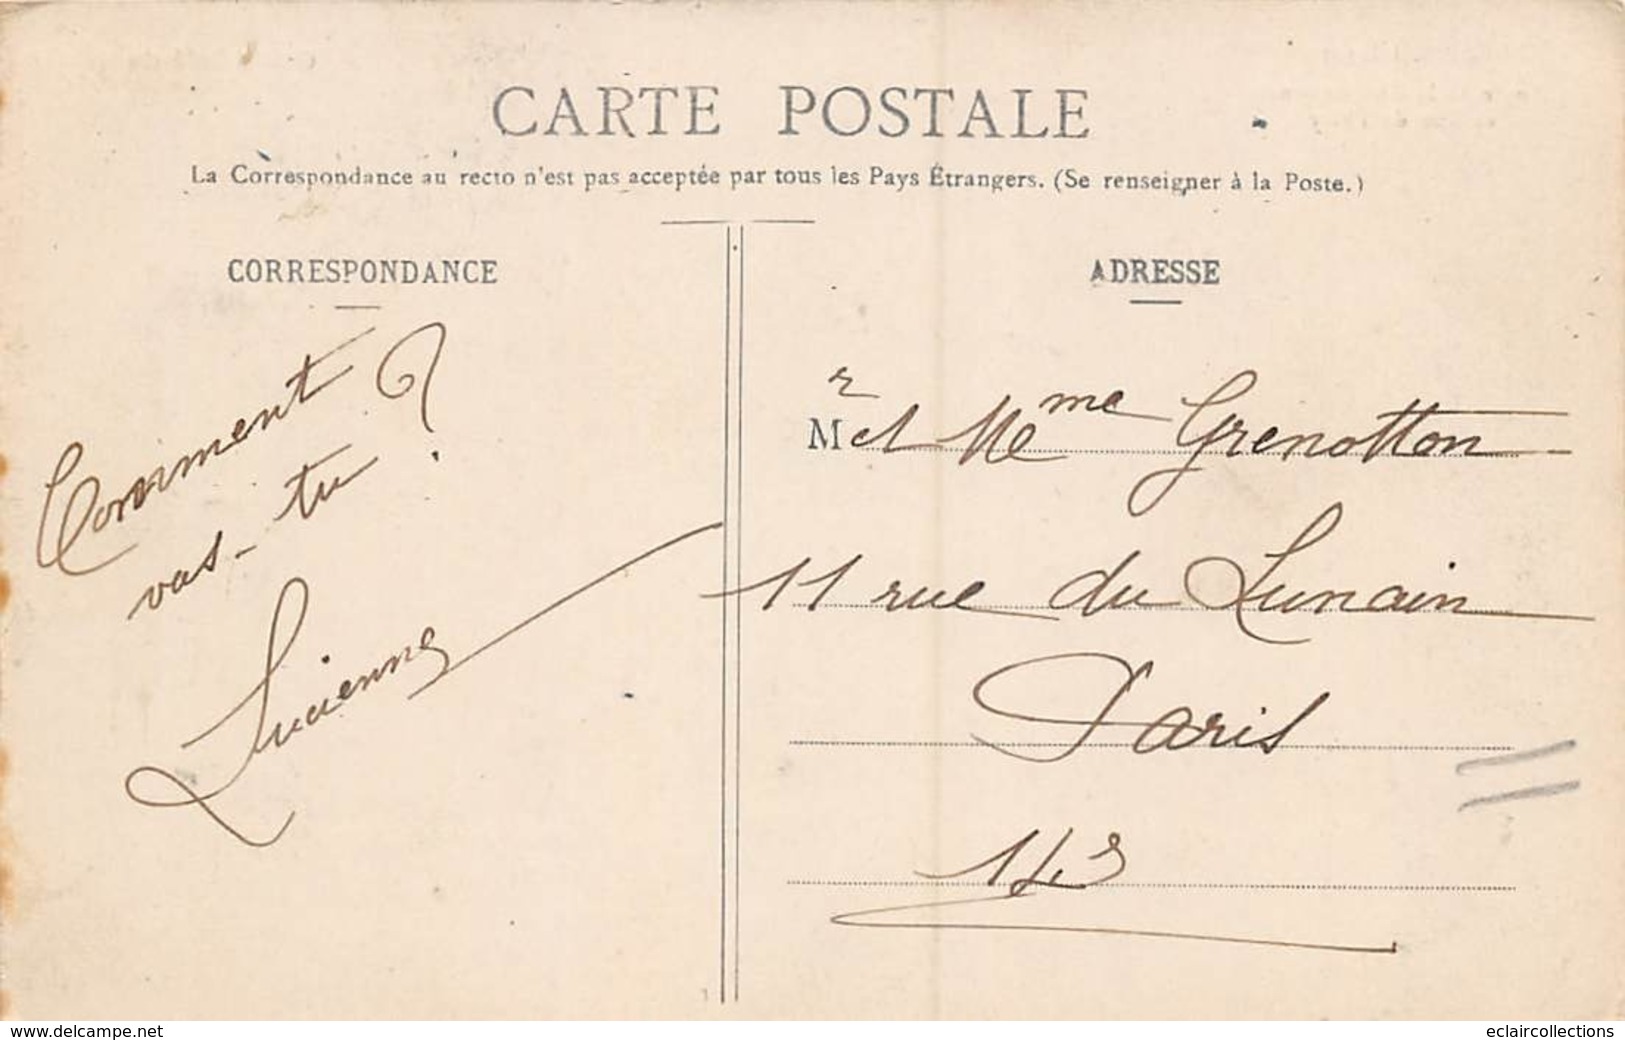 CARTE POSTALE
La Correspondance au recto n'est pas acceptée par tous les Pays Étrangers. (Se renseigner à la Poste.)
CORRESPONDANCE
Comment
vas-tu ?
Lucienne
ADRESSE
Mr et Mme Grenotton
11 rue du Lunain
Paris
14e
www.delcampe.net
eclaircollections